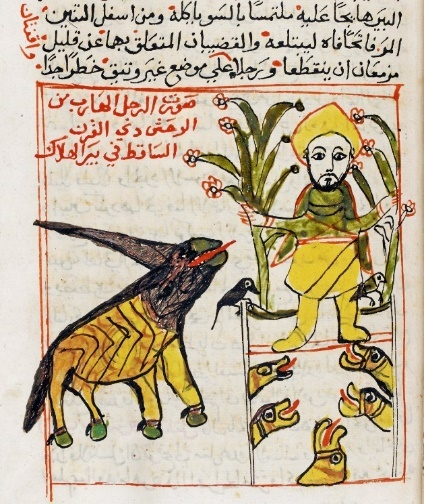 البير هايجا عليه ملتمسا بالسو باكله ومن اسفل التنين
المر فاتحا فاه ليبتلعه والقضيبان المتعلق بهما عن قليل
مزمعان ان ينقطعا ورجلاه علي موضع غير وتيق خطر جدا
صورت الرجل الهارب من
الوحش دي القرن
الساقط في بير الهلاك